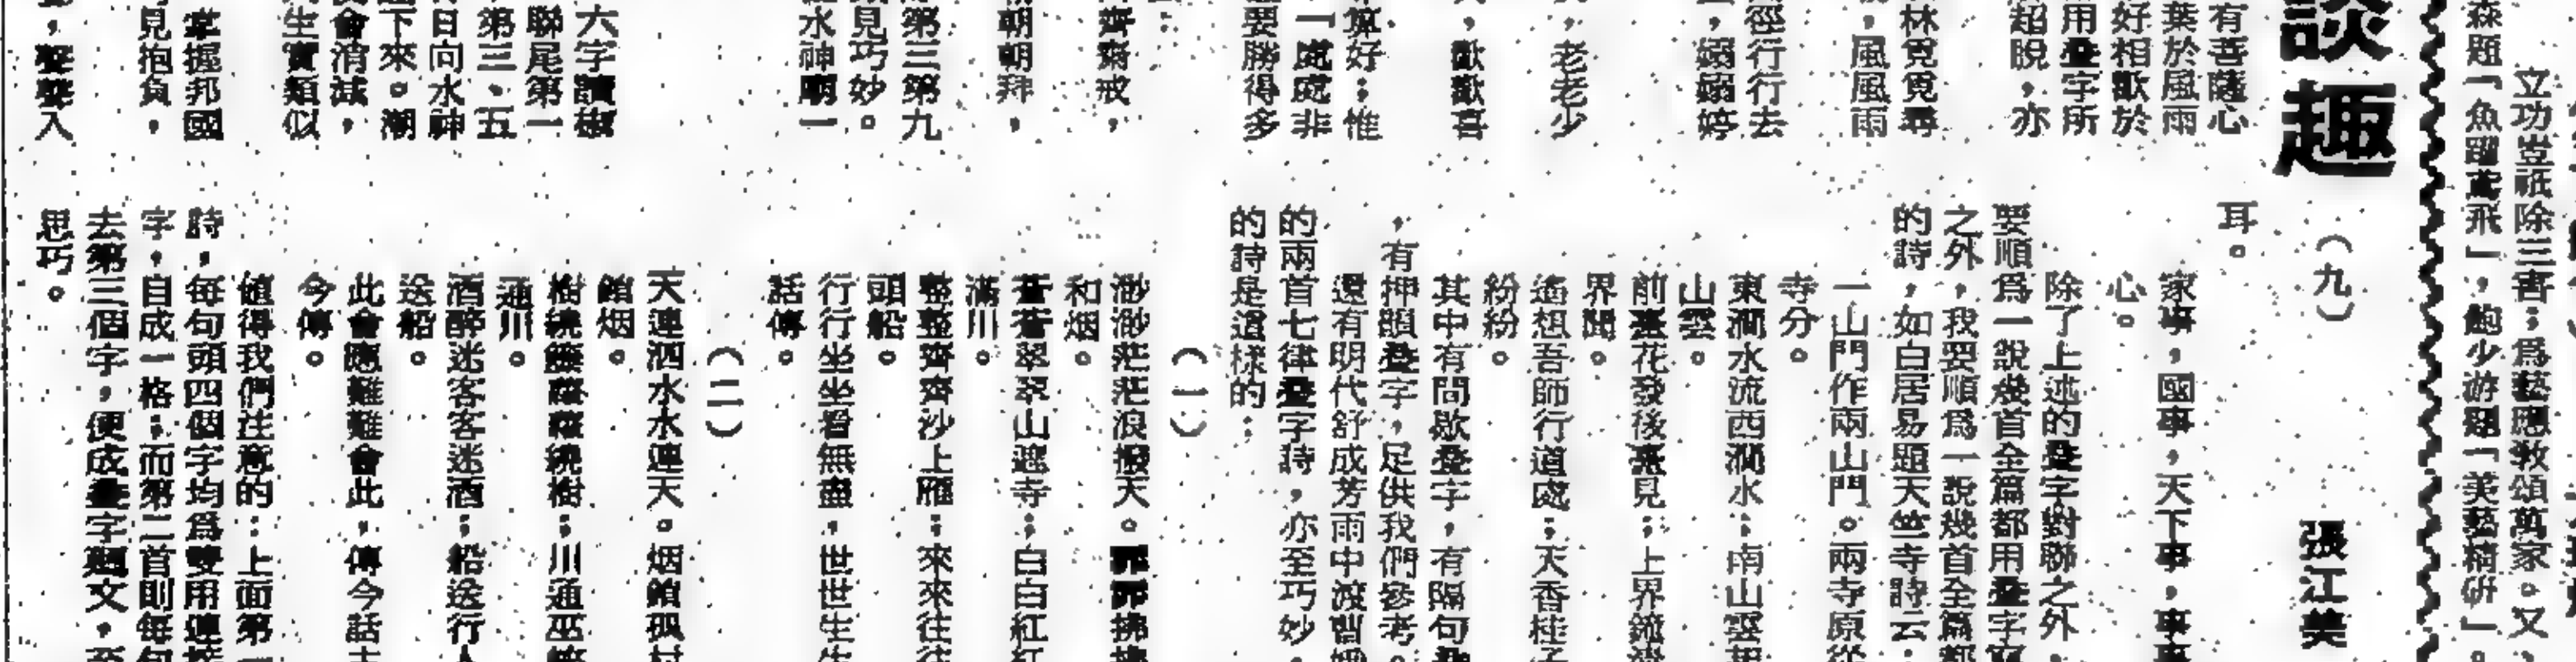 立功豈祇除三害;爲藝應教頌萬家。又
森題「魚躍鳶飛」,鮑少游題「美藝精研」。
談趣
(九)
張江美
有菩薩心
葉於風雨
好相歡於
用疊字所
超脫,亦
林覓覓尋
,風風雨
徑行行去
,嫋嫋婷
,老老少
,歡歡喜
算好;惟
「處處非
要勝得多
齊齋戒,
朝朝拜,
第三第九
見巧妙。
水神廟一
六字讀樣
聯尾第一
第三,五
日向水神
下來。潮
會消減,
生實類似
掌握邦國
見抱負,
,聲聲入
耳。
家事,國事,天下事,事事
心。
除了上述的疊字對聯之外,
要順爲一說幾首全篇都用疊字寫
之外,我要順爲一說幾首全篇都
的詩,如白居易題天竺寺詩云:
一山門作兩山門。兩寺原從
寺分。
東澗水流西澗水;南山雲起
山雲。
前臺花發後臺見;上界鐘清
界聞。
遙想吾師行道處;天香桂子
紛紛。
其中有間歇疊字,有隔句疊
,有押韻疊字,足供我們參考。
還有明代舒成芳雨中渡曹娥
的兩首七律疊字詩,亦至巧妙,
的詩是這樣的:
(一)
渺渺茫茫浪撥天。霏霏拂拂
和烟。
蒼蒼翠翠山遮寺;白白紅紅
滿川。
整整齊齊沙上雁;來來往往
頭船。
行行坐坐看無盡,世世生生
話傳。
(二)
天連泗水水連天。烟鎖孤村
鎖烟。
樹繞藤蘿蘿繞樹;川通巫峽
通川。
酒醉迷客客迷酒;船送行人
送船。
此會應難難會此,傳今話古
今傳。
值得我們注意的:上面第一
詩,每句頭四個字均爲雙用連接
字,自成一格;而第二首則每句
去第三個字,便成疊字廻文,至
思巧。